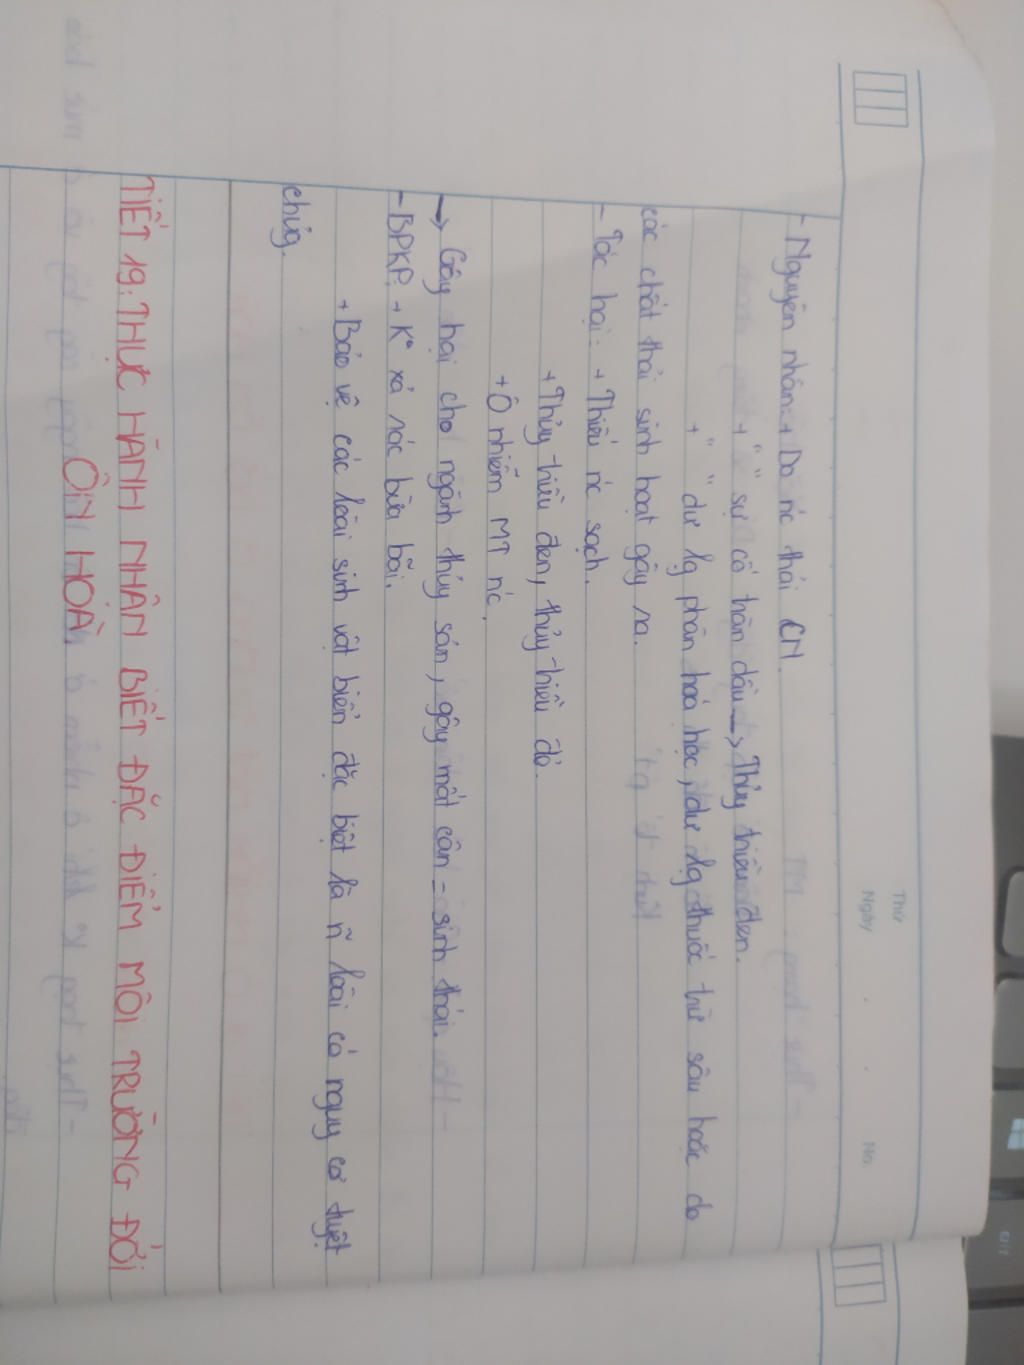 Thứ
Ngày . . No
- Nguyên nhân: + Do nc thải CN.
+ " " sự cố tràn dầu → Thủy triều đen.
+ " " dư lg phân hoá học, dư lg thuốc trừ sâu hoặc do
các chất thải sinh hoạt gây ra.
- Tác hại: + Thiếu nc sạch.
+ Thủy triều đen, thủy triều đỏ.
+ Ô nhiễm MT nc.
→ Gây hại cho ngành thủy sản, gây mất cân = sinh thái.
- BPKP: + K° xả rác bừa bãi.
+ Bảo vệ các loài sinh vật biển đặc biệt là ~n loài có nguy cơ tuyệt
chủg.
TIẾT 19: THỰC HÀNH NHÂN BIẾT ĐẶC ĐIỂM MÔI TRƯỜNG ĐỚI
ÔN HOÀ